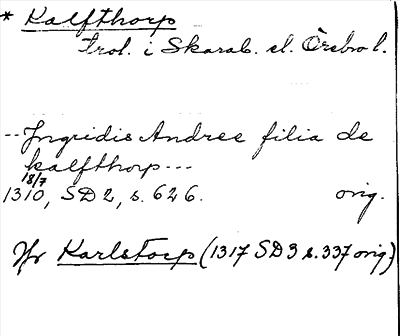 * Kalfthorp
Trol. i Skarab. el. Örebro l.
-- Ingridis Andree filia de
kalfthorp ---
18/7
1310, SD 2, s. 626. orig.
Jfr Karlstorp (1317 SD 3 s. 337 orig)